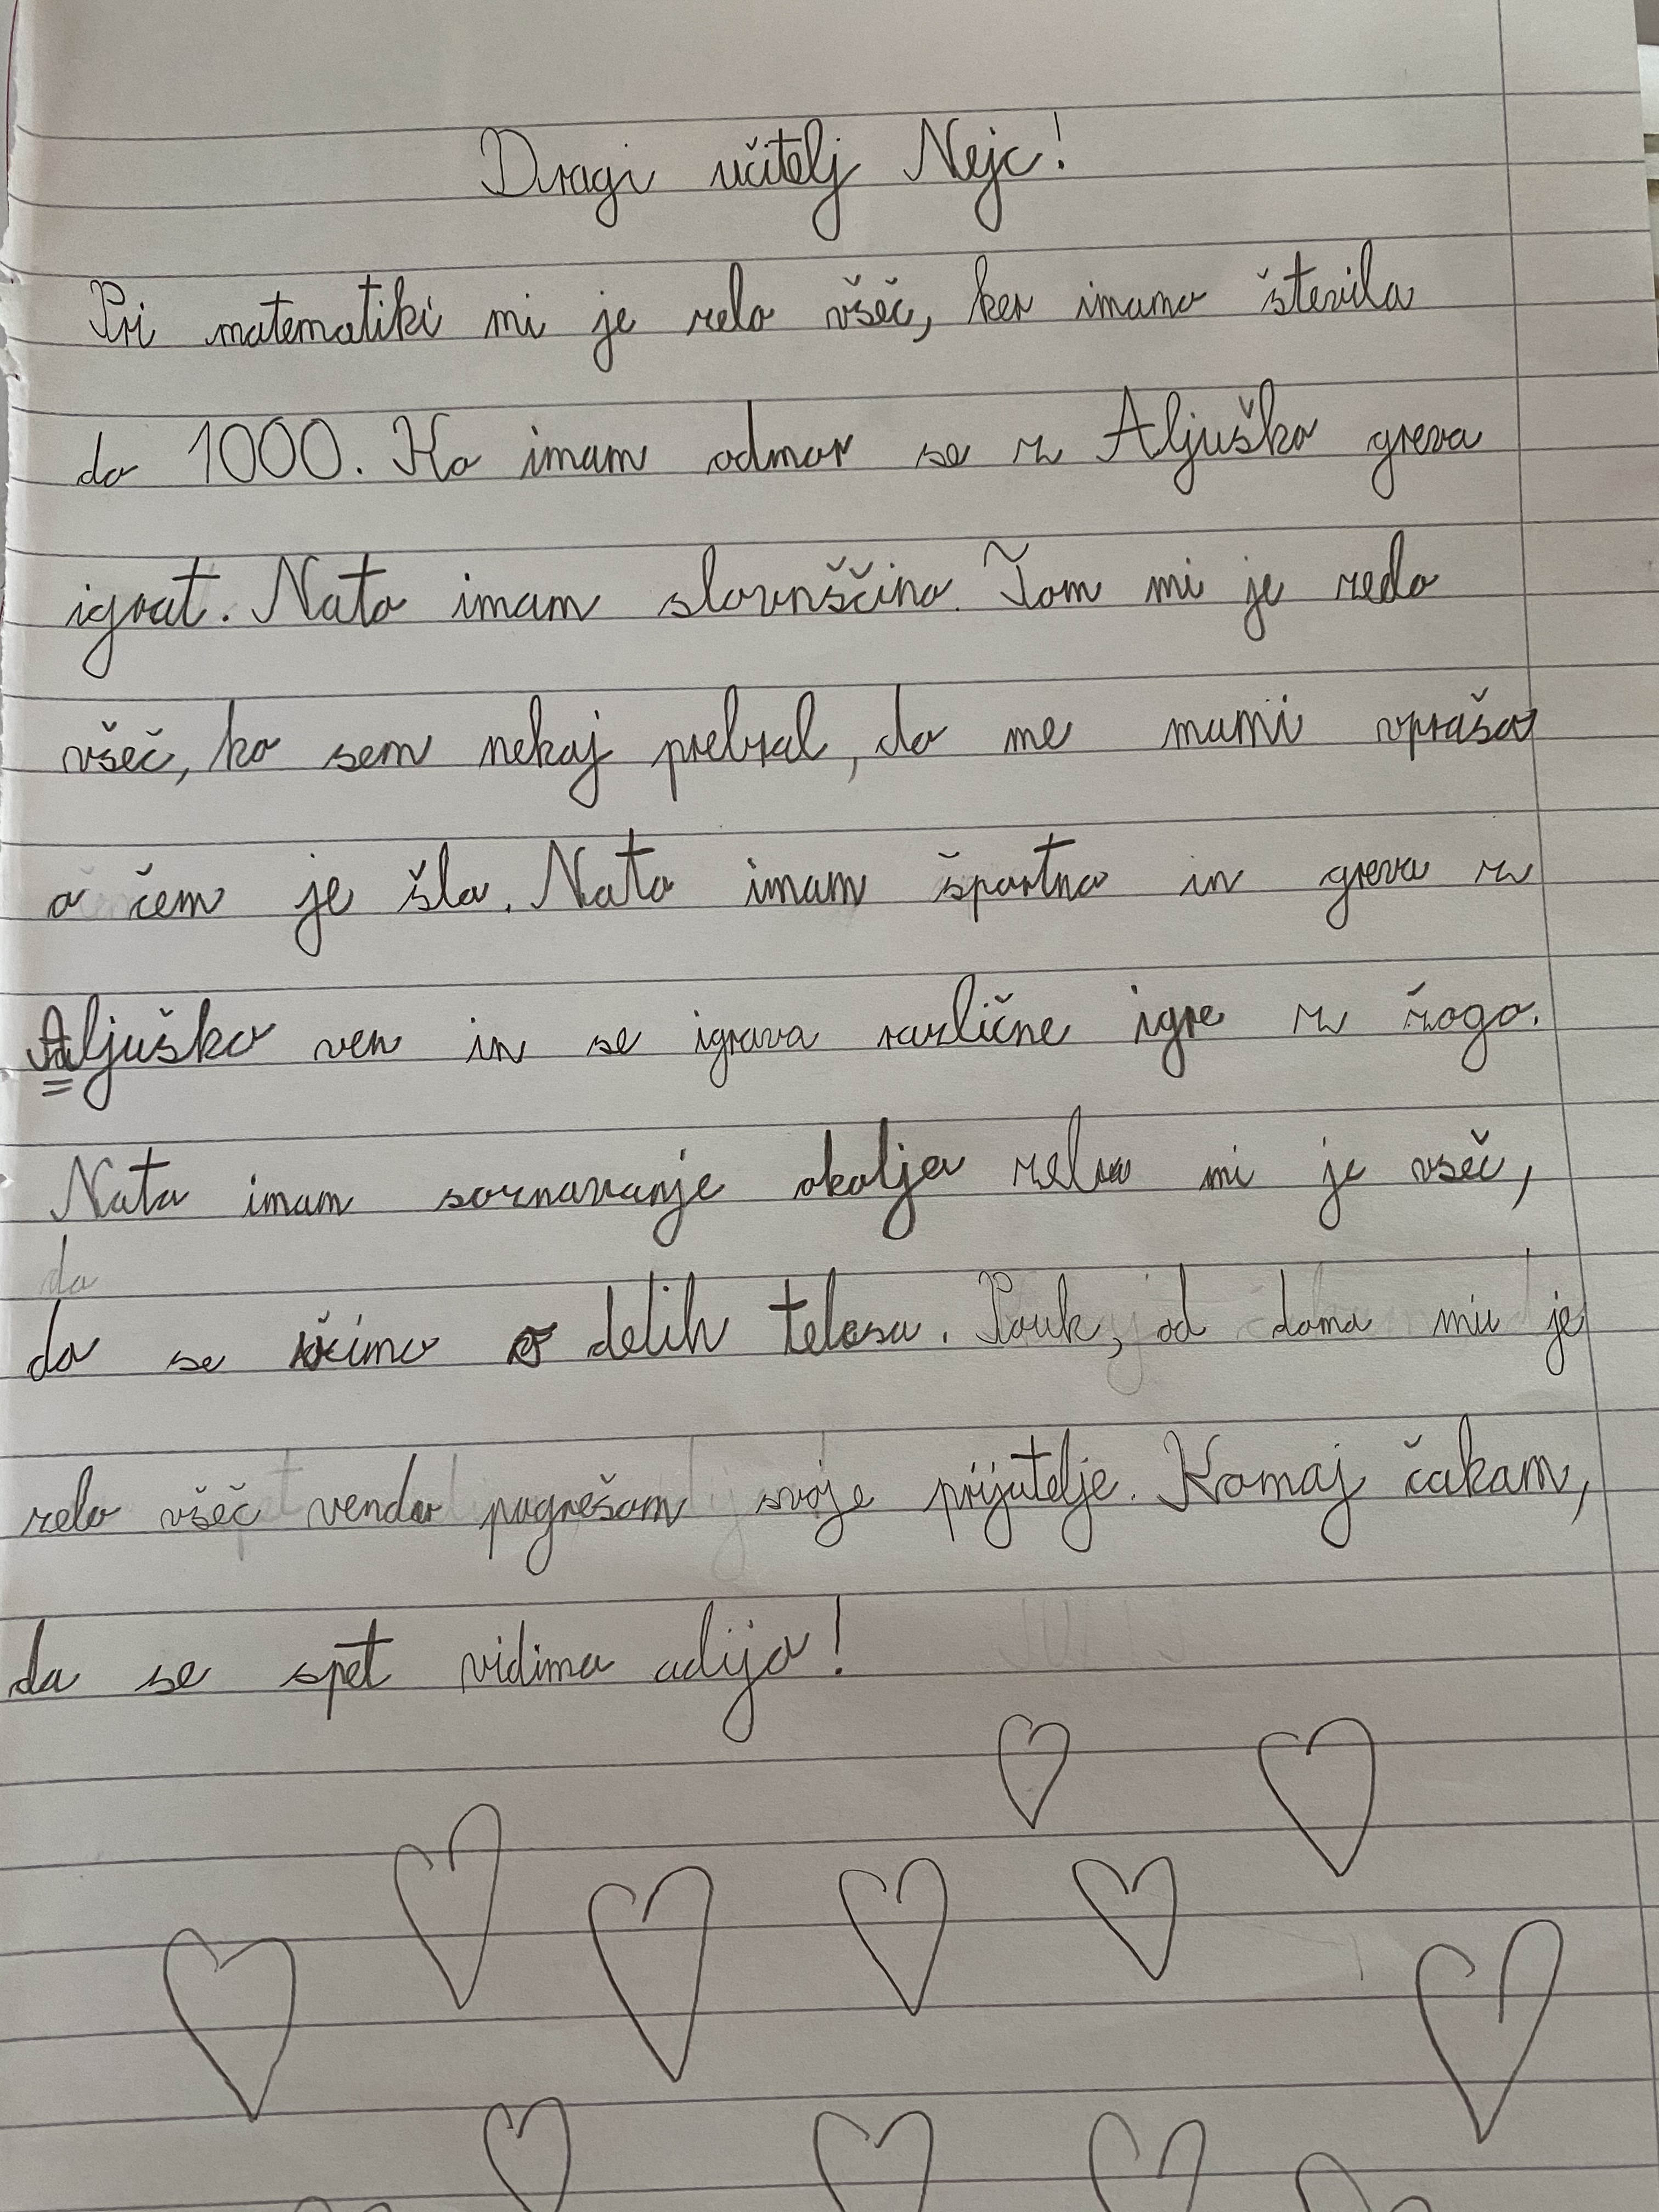 Dragi učitelj Nejc!
Pri matematiki mi je zelo všeč, ker imamo števila
do 1000. Ko imam odmor se z Aljuško greva
igrat. Nato imam slovnščino. Tam mi je zelo
všeč, ko sem nekaj prebral, da me mami vpraša
o čem je šlo. Nato imam športno in greva z
Aljuško ven in se igrava različne igre z žogo.
Nato imam soznavanje okolja zelo mi je všeč,
da
da se učimo o delih telesa. Pouk, od doma mi je
zelo všeč vendar pogrešam svoje prijatelje. Komaj čakam,
da se spet vidimo adijo!